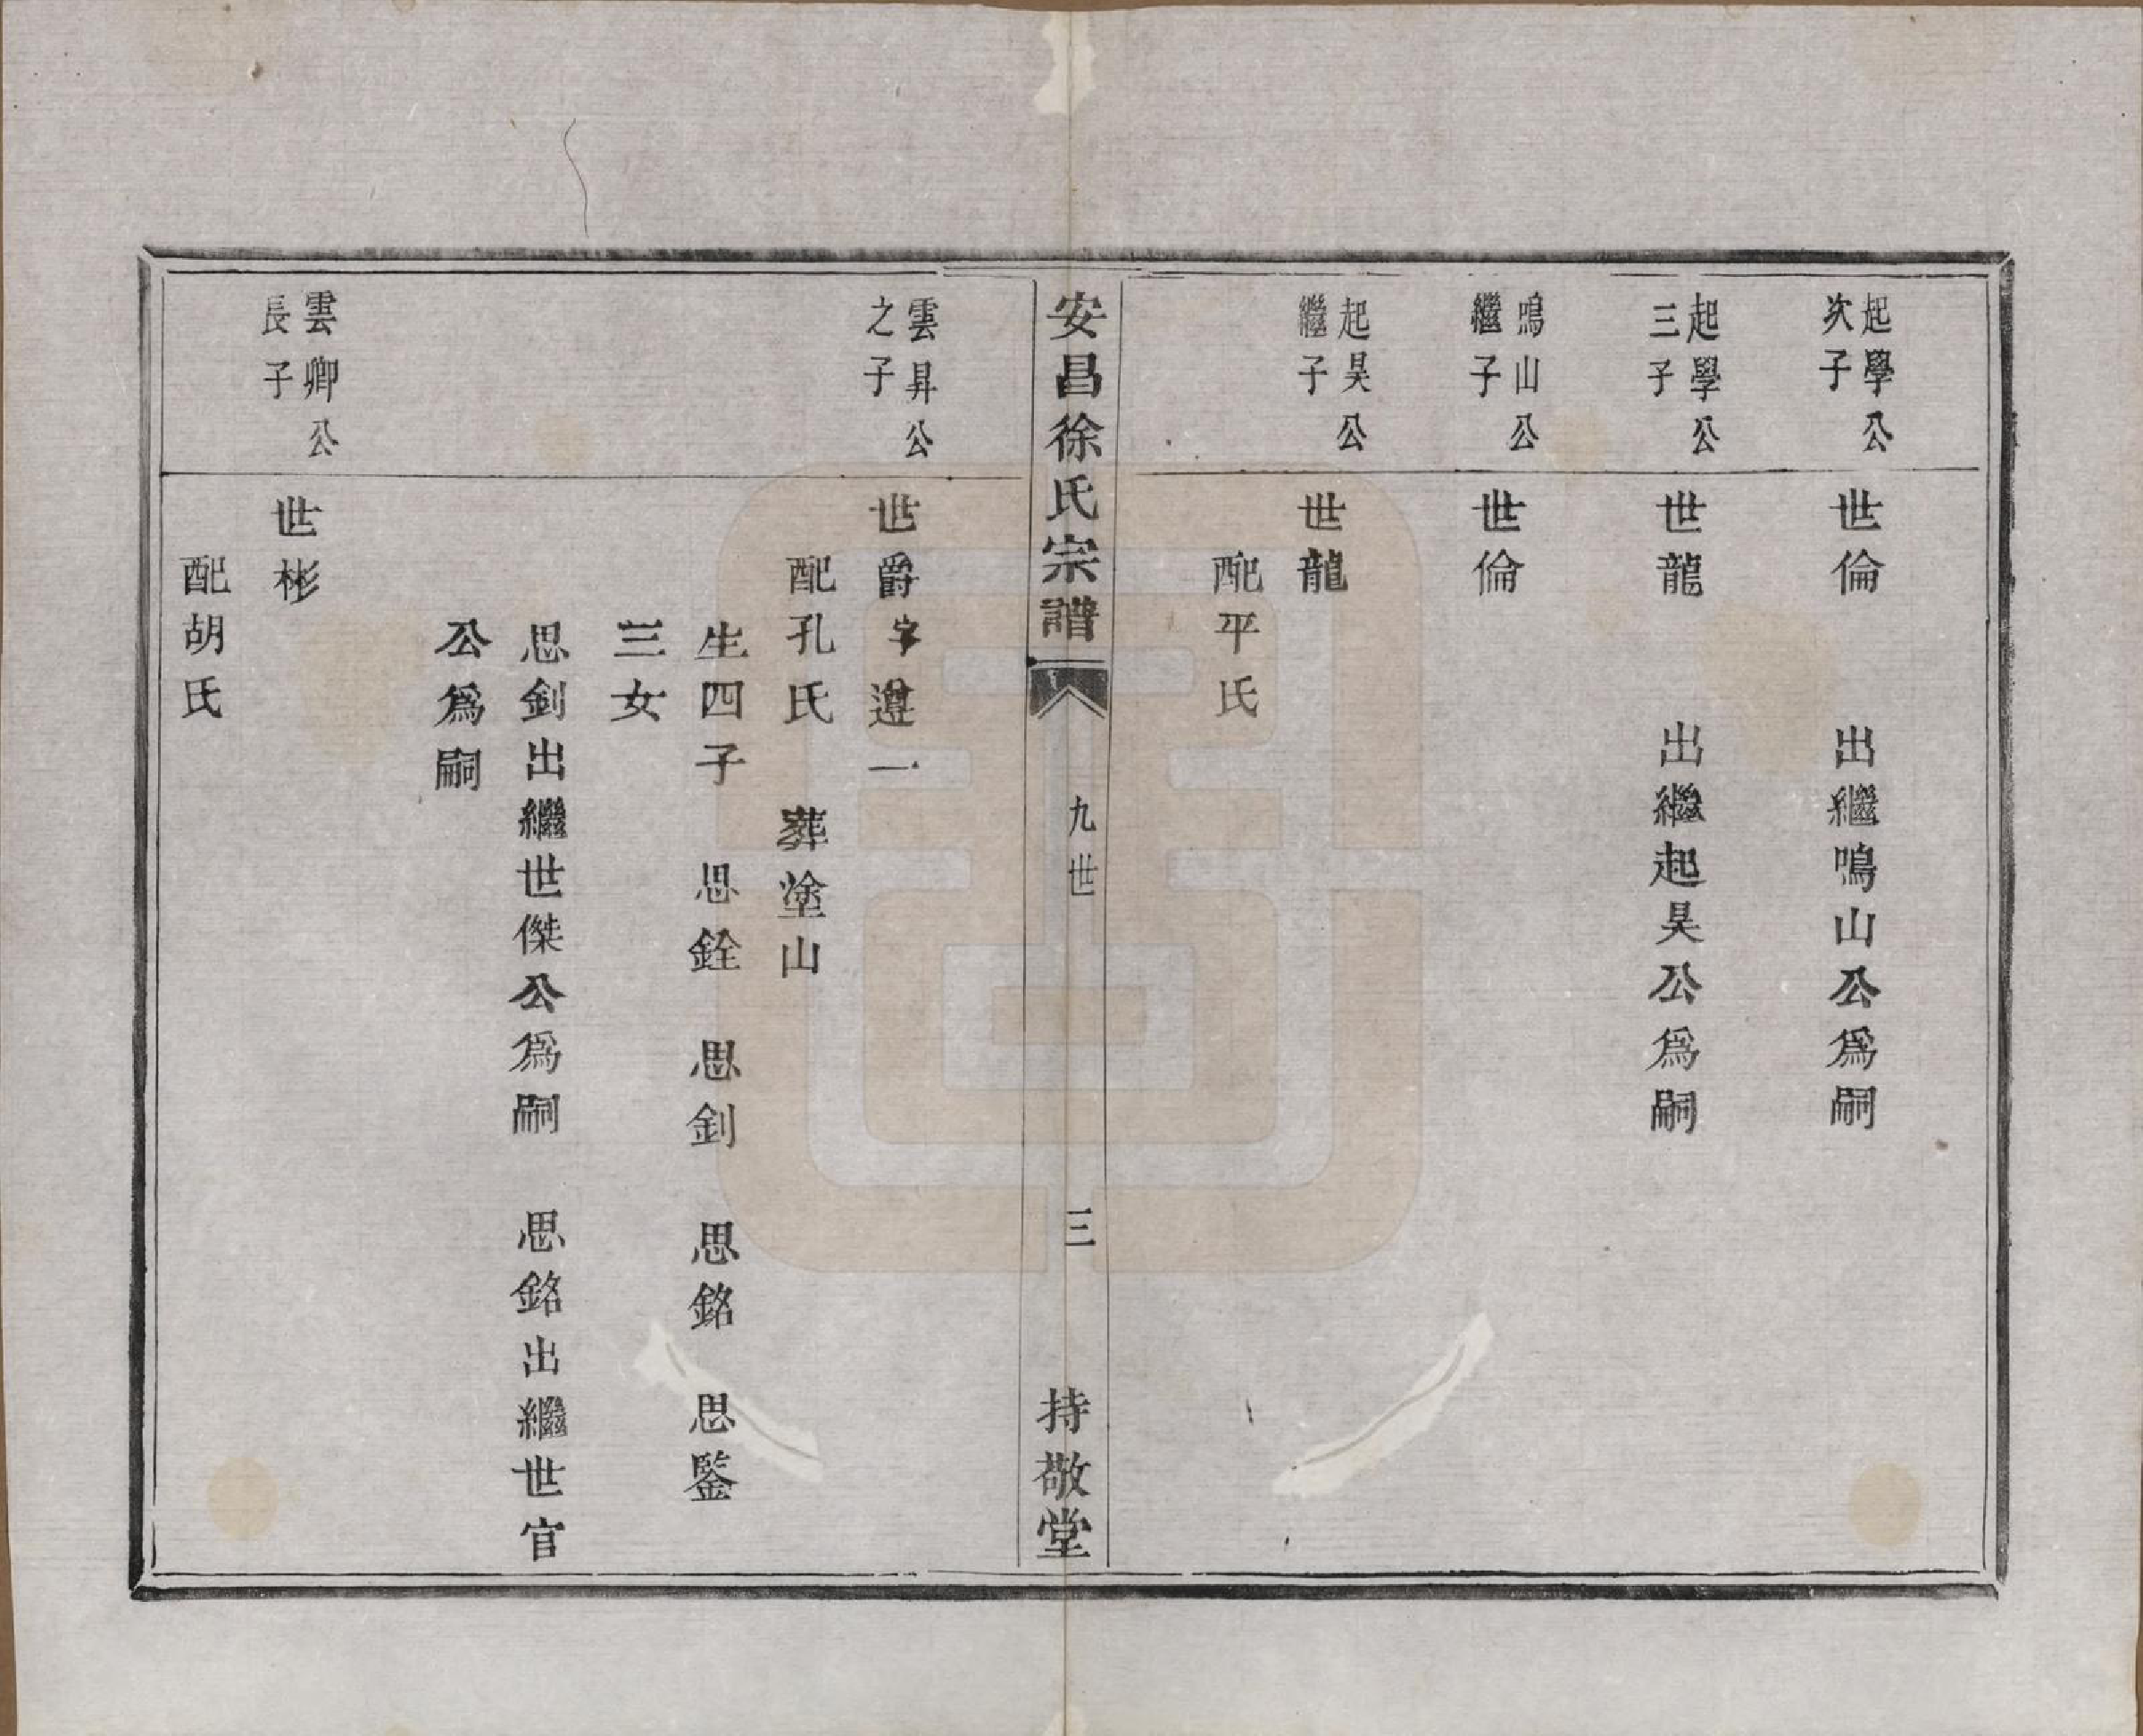 起學公
次子
世倫　出繼鳴山公爲嗣
起學公
三子
世龍　出繼起昊公爲嗣
鳴山公
繼子
世倫
起昊公
繼子
世龍
配平氏
安昌徐氏宗譜　九世　三　持敬堂
雲昇公
之子
世爵字遵一
配孔氏　葬塗山
生四子　思銓　思釗　思銘　思鑒
三女
思釗出繼世傑公爲嗣　思銘出繼世官
公爲嗣
雲卿公
長子
世彬
配胡氏